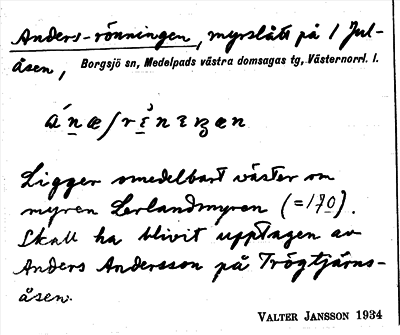 Anders-rönningen, myrslått på 1 Jul-
åsen, Borgsjö sn, Medelpads västra domsagas tg, Västernorrl. l.
Ligger omedelbart väster om
myren Lerlandmyren (=170).
Skall ha blivit upptagen av
Anders Andersson på Trögtjärns-
åsen.
VALTER JANSSON 1934